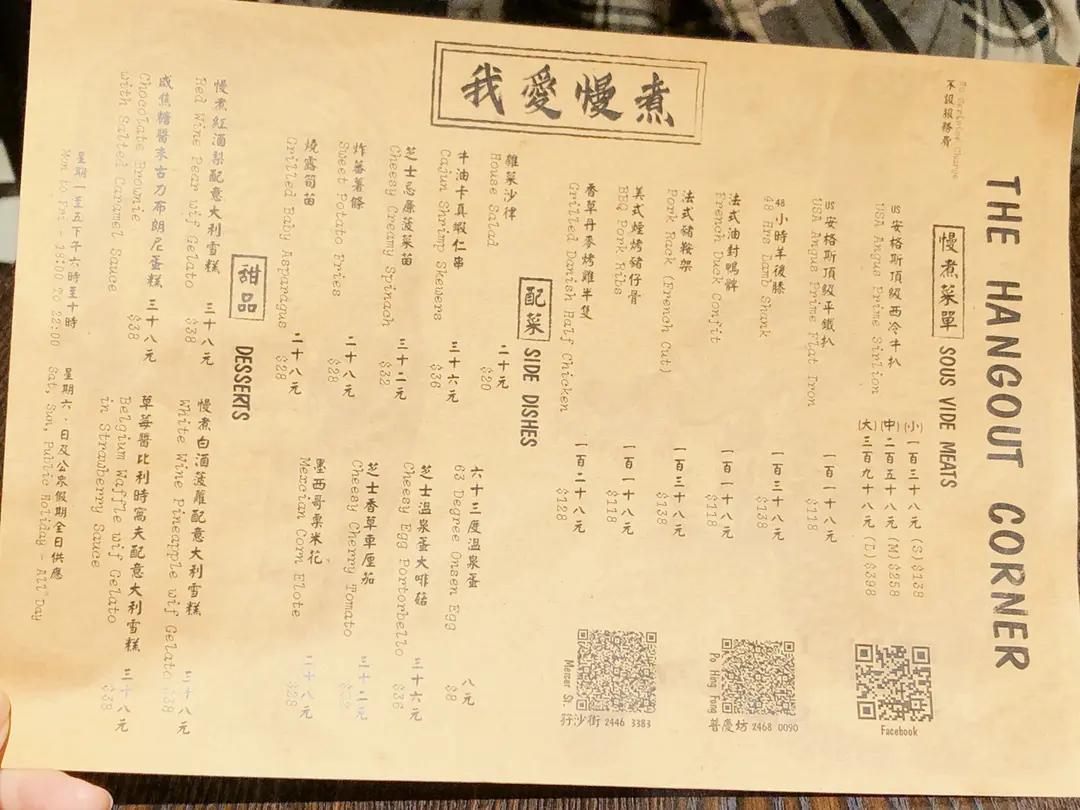 THE HANGOUT CORNER
No Service Charge
不設服務費
慢煮菜單 SOUS VIDE MEATS
US安格斯頂級西冷牛扒
USA Angus Prime Sirlion
(小) 一百三十八元 (S) $138
(中) 二百五十八元 (M) $258
(大) 三百九十八元 (L) $398
US安格斯頂級平鐵扒 一百一十八元
USA Angus Prime Flat Iron $118
48小時羊後膝 一百三十八元
48 Hrs Lamb Shank $138
法式油封鴨髀 一百一十八元
French Duck Confit $118
法式豬鞍架 一百三十八元
Pork Rack (French Cut) $138
美式煙烤豬仔骨 一百一十八元
BBQ Pork Ribs $118
香草丹麥烤雞半隻 一百二十八元
Grilled Danish Half Chicken $128
Facebook
Po Hing Fong
普慶坊 2468 0090
Mercer St.
孖沙街 2446 3383
我愛慢煮
配菜 SIDE DISHES
雜菜沙律 二十元
House Salad $20
牛油卡真蝦仁串 三十六元
Cajun Shrimp Skewers $36
芝士忌廉菠菜苗 三十二元
Cheesy Creamy Spinach $32
炸蕃薯條 二十八元
Sweet Potato Fries $28
燒露筍苗 二十八元
Grilled Baby Asparagus $28
六十三度溫泉蛋 八元
63 Degree Onsen Egg $8
芝士溫泉蛋大啡菇 三十六元
Cheesy Egg Portorbello $36
芝士香草車厘茄 三十二元
Cheesy Cherry Tomato
墨西哥粟米花 二十八元
Mexcian Corn Elote $28
甜品 DESSERTS
慢煮紅酒梨配意大利雪糕 三十八元
Red Wine Pear wif Gelato $38
咸焦糖醬朱古力布朗尼蛋糕 三十八元
Chocolate Brownie $38
with Salted Caramel Sauce
慢煮白酒菠蘿配意大利雪糕 三十八元
White Wine Pineapple wif Gelato $38
草莓醬比利時窩夫配意大利雪糕 三十八元
Belgium Waffle wif Gelato $38
in Strawberry Sauce
星期一至五下午六時至十時
Mon to Fri - 18:00 To 22:00
星期六，日及公眾假期全日供應
Sat, Sun, Public Holiday - All Day